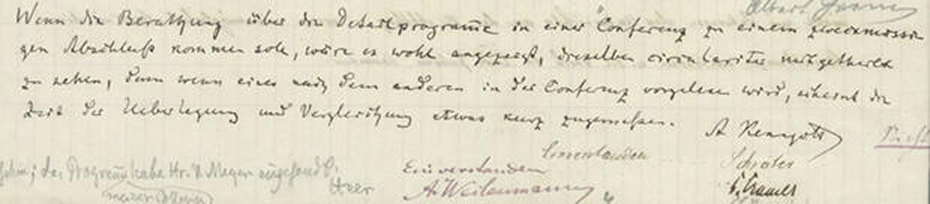 Wenn die Berathung über die Detailprogramme in einer Conferenz zu einem zweckmässi-
gen Abschluß kommen soll, wäre es wohl angezeigt, dieselben circulariter mitgetheilt
zu sehen, denn wenn eines nach dem anderen in der Conferenz vorgelesen wird, scheint die
Zeit der Ueberlegung und Vergleichung etwas kurz zugemessen. A Kenngott
Einverstanden Schröter
das Programm habe Hr. V. Meyer
Heer
Einverstanden
A. Weilenmann
C. Cramer